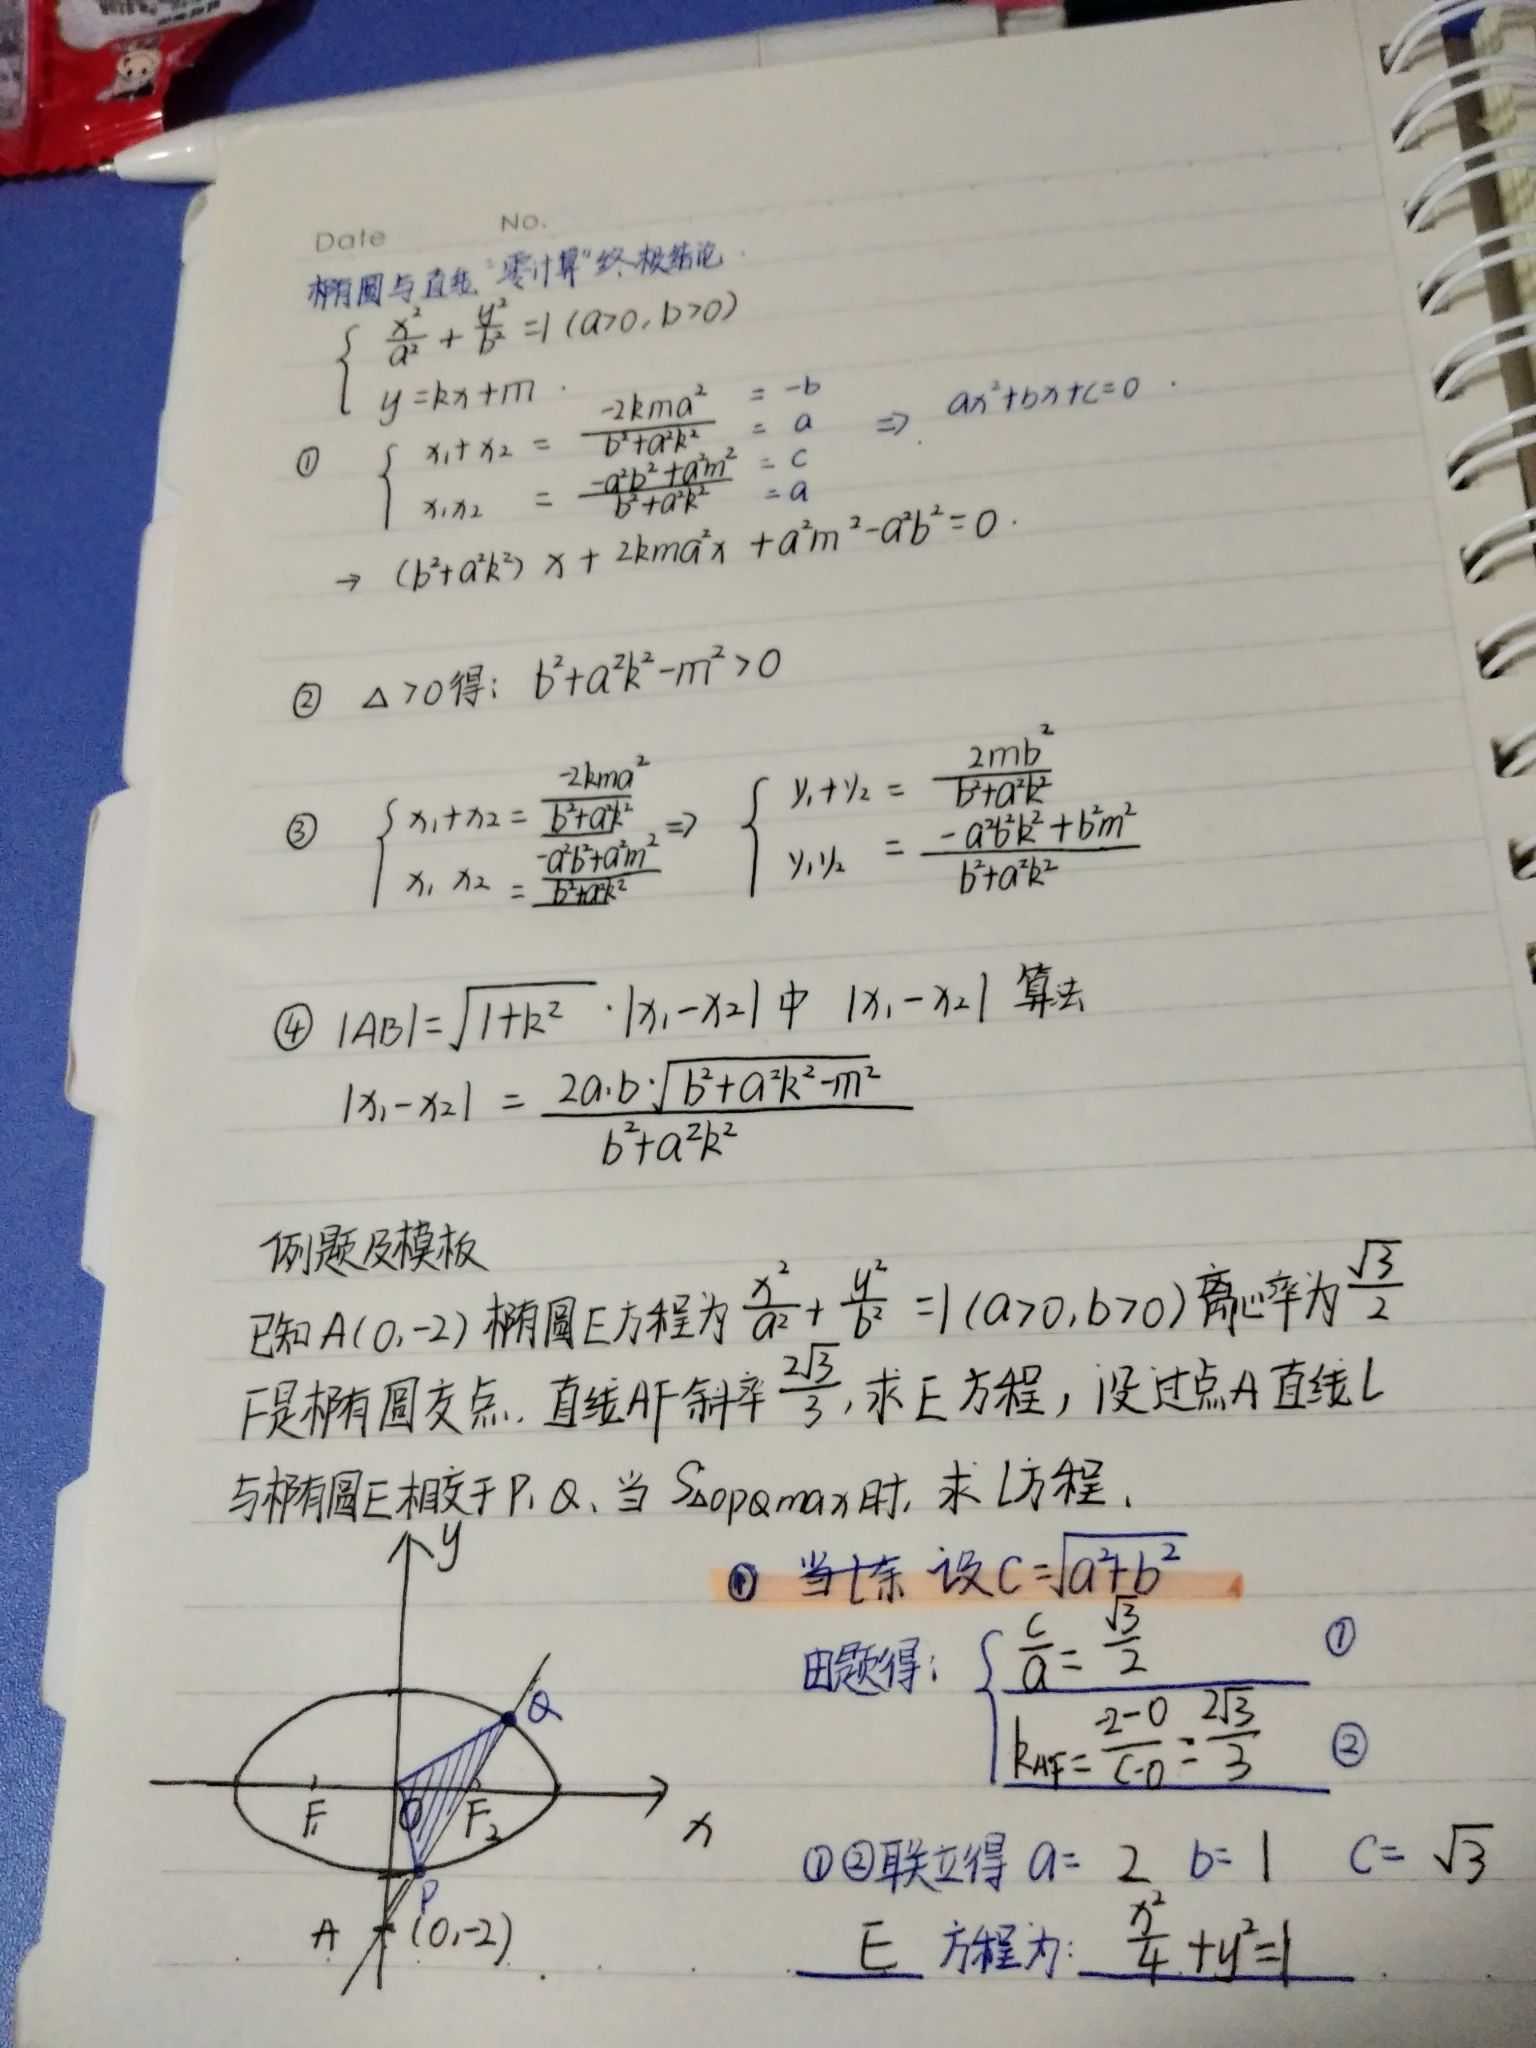 Date No.
椭圆与直线"零计算"终极结论.
{ x²/a² + y²/b² = 1 (a>0, b>0)
y = kx+m .
① { x₁+x₂ = -2kma² / b²+a²k² = -b = a ⇒ ax²+bx+c=0 .
x₁x₂ = -a²b²+a²m² / b²+a²k² = c = a
→ (b²+a²k²) x + 2kma²x + a²m²-a²b² = 0 .
② △>0得: b²+a²k²-m²>0
③ { x₁+x₂ = -2kma² / b²+a²k² ⇒ { y₁+y₂ = 2mb² / b²+a²k²
x₁ x₂ = -a²b²+a²m² / b²+a²k² y₁y₂ = -a²b²k²+b²m² / b²+a²k²
④ |AB| = √1+k² · |x₁-x₂| 中 |x₁-x₂| 算法
|x₁-x₂| = 2a·b·√b²+a²k²-m² / b²+a²k²
例题及模板
已知A(0,-2) 椭圆E方程为 x²/a² + y²/b² = 1 (a>0, b>0) 离心率为 √3/2
F是椭圆交点. 直线AF斜率 2√3/3, 求E方程, 设过点A直线L
与椭圆E相交于P, Q、当 S△OPQmax时, 求l方程.
y
① 设C=√a²+b²
由题得: { c/a = √3/2 ①
kAF = -2-0 / c-0 = 2√3/3 ②
Q
F₁ O F₂ x
P
A (0,-2)
①②联立得 a= 2 b= 1 c= √3
E 方程为: x²/4 + y² = 1